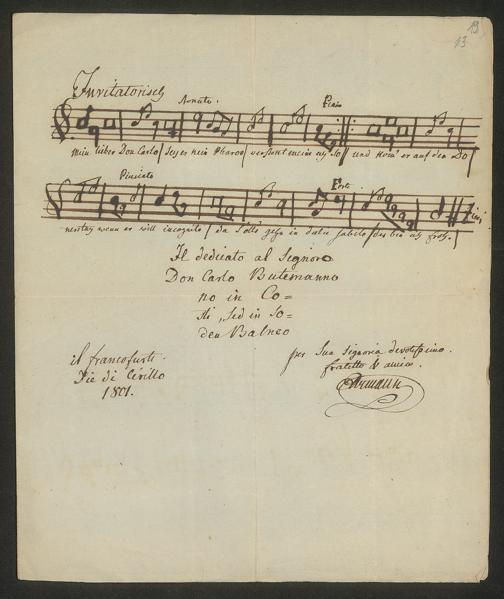 13
13
Invitatorisch
Piano
Mein lieber Don Carlo sey er kein Pharao und komm er auf den Do
Pinicato
Forte
nerstag wenn er will incognito da solls gehn in dulci jubilo
Il dedicato al Signoro
Don Carlo Butemanno
no in Co=
sti, sed in So=
den Balneo
il francofurti.
Die di Cirillo
1801.
per Sua Signoria devotissimo.
fratello & amico.